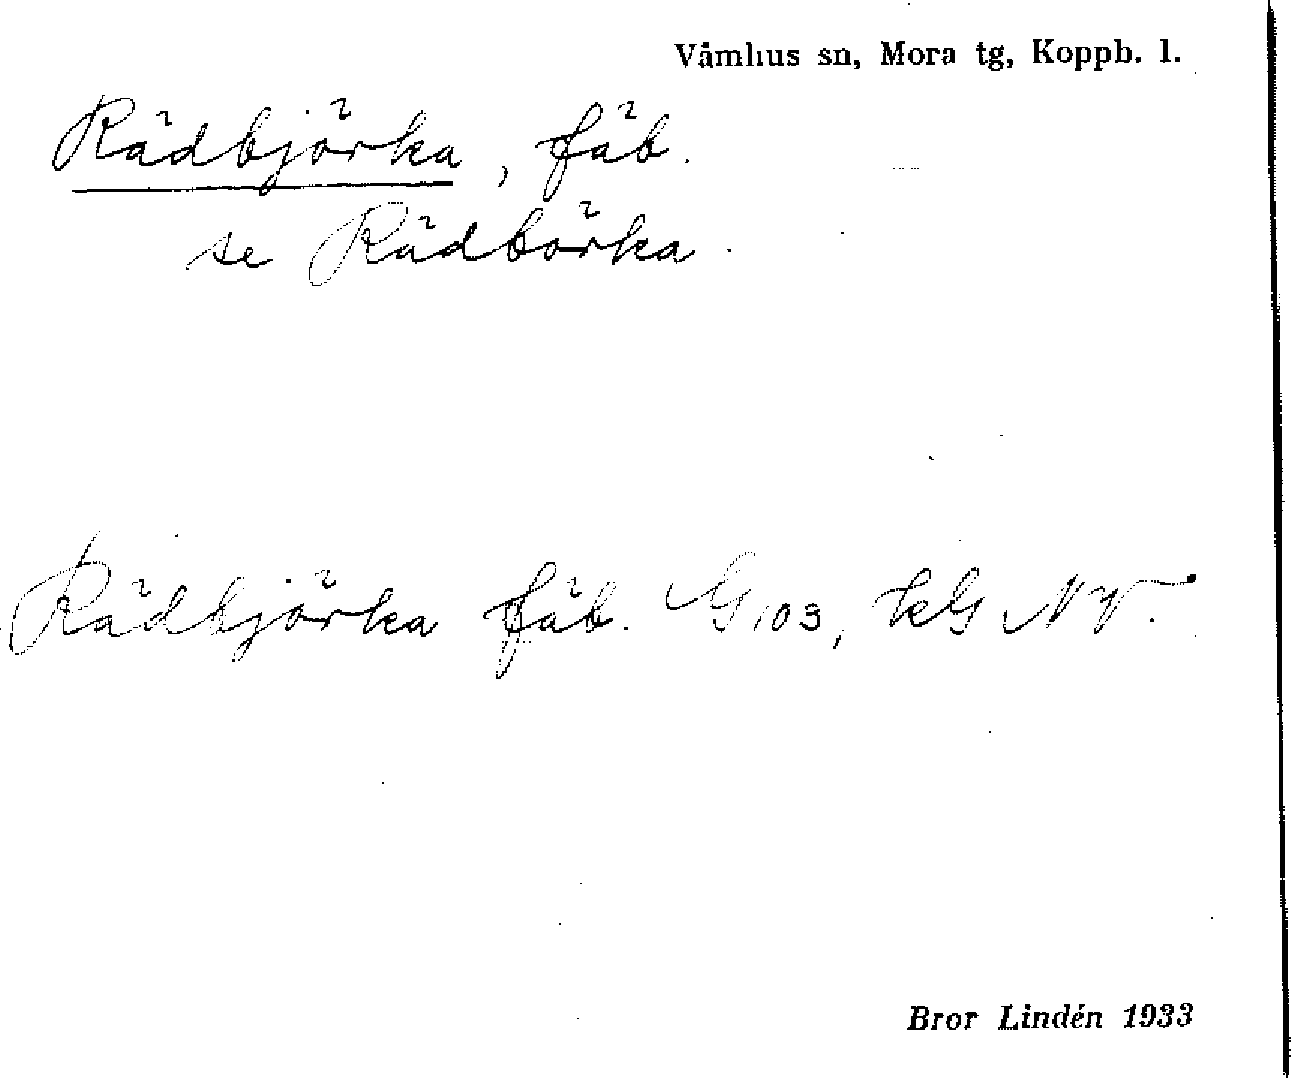 Våmhus sn, Mora tg, Koppb. l.
Rädbjörka, fäb.
se Rädbörka.
Rädbjörka fäb. G 103, kG NV.
Bror Lindén 1933